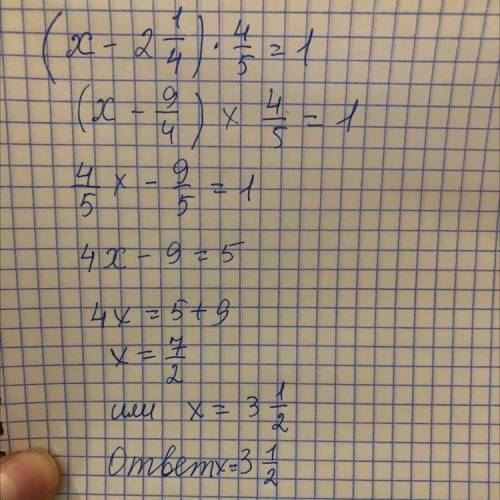 (x - 2 1/4) · 4/5 = 1
(x - 9/4) × 4/5 = 1
4/5 x - 9/5 = 1
4x - 9 = 5
4x = 5 + 9
x = 7/2
или x = 3 1/2
Ответ x = 3 1/2